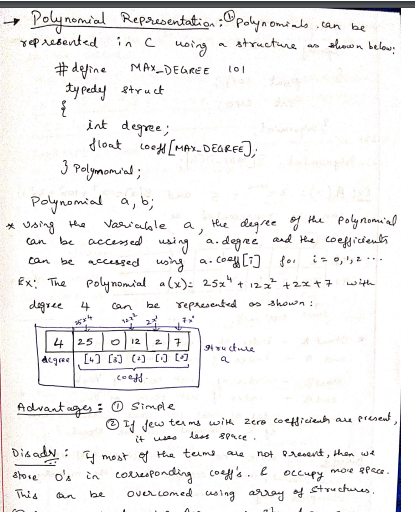 → Polynomial Representation: ① Polynomials can be
represented in C using a structure as shown below:
# define MAX_DEGREE 101
typedef struct
{
int degree;
float coeff[MAX_DEGREE];
} Polynomial;
Polynomial a, b;
* Using the variable a, the degree of the polynomial
can be accessed using a.degree and the coefficients
can be accessed using a.coeff[i] for i = 0,1,2 ...
Ex: The polynomial a(x) = 25x⁴ + 12x² + 2x + 7 with
degree 4 can be represented as shown:
25x⁴ 12x² 2x¹ 7x⁰
4 25 0 12 2 7 structure
degree [4] [3] [2] [1] [0] a
coeff.
Advantages: ① Simple
② If few terms with zero coefficients are present,
it uses less space.
Disadv: If most of the terms are not present, then we
store 0's in corresponding coeff's. & occupy more space.
This can be overcomed using array of structures.